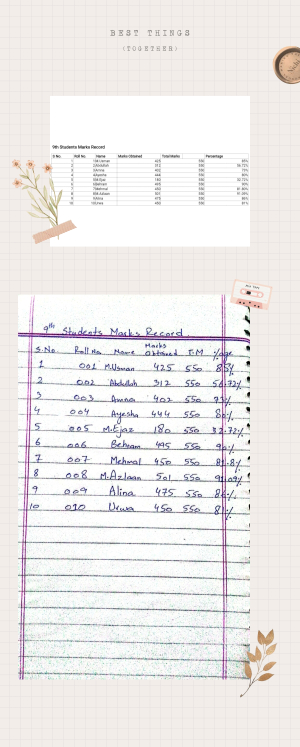 BEST THINGS
(TOGETHER)
9th Students Marks Record
S No. Roll No. Name Marks Obtained Total Marks Percentage
1 1 M.Usman 425 550 85%
2 2 Abdullah 312 550 56.72%
3 3 Amna 402 550 73%
4 4 Ayesha 444 550 80%
5 5 M.Ejaz 180 550 32.72%
6 6 Behram 495 550 90%
7 7 Mehmal 450 550 81.80%
8 8 M.Azlaan 501 550 91.09%
9 9 Alina 475 550 86%
10 10 Urwa 450 550 81%
9th Students Marks Record.
S.No. Roll No. Name Marks Obtained T.M %age
1 001 M.Usman 425 550 85%
2 002 Abdullah 312 550 56.72%
3 003 Amna 402 550 73%
4 004 Ayesha 444 550 80%
5 005 M.Ejaz 180 550 32.72%
6 006 Behram 495 550 90%
7 007 Mehmal 450 550 81.8%
8 008 M.Azlaan 501 550 91.09%
9 009 Alina 475 550 86%
10 010 Urwa 450 550 81%